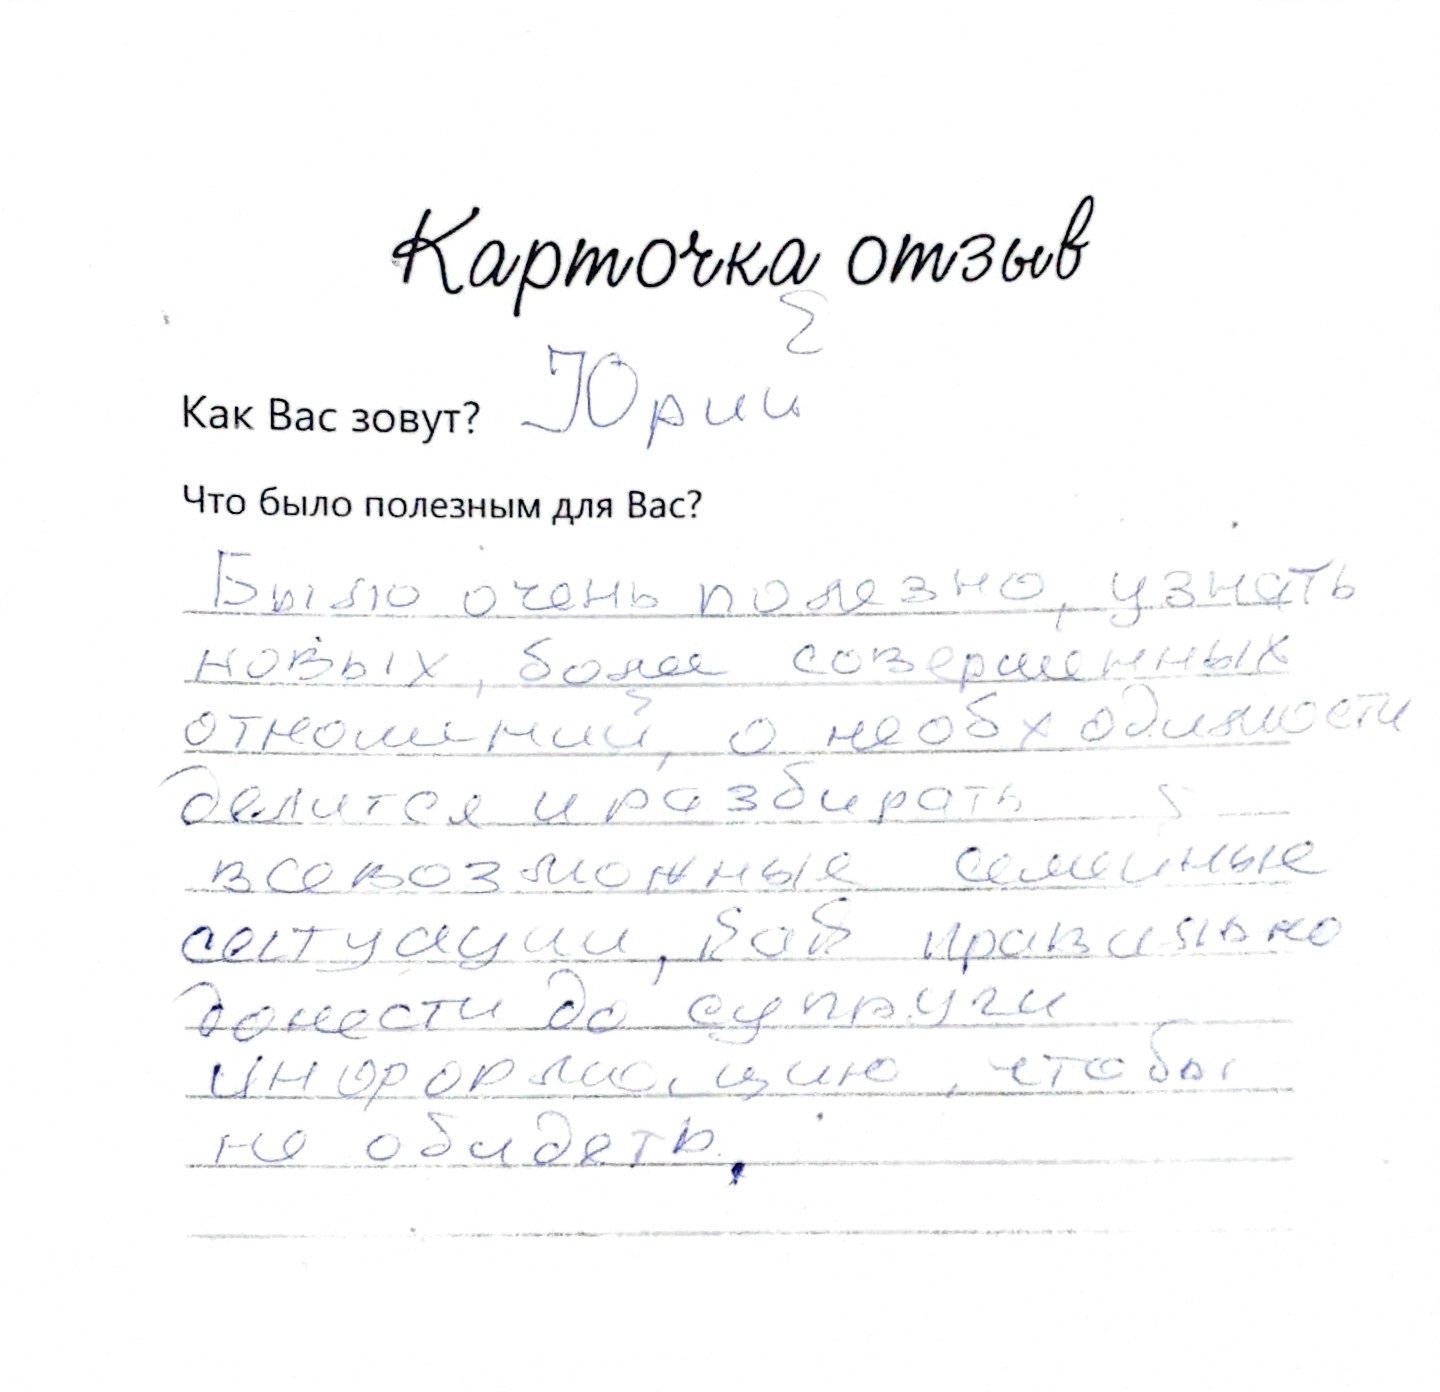 Карточка отзыв
Как Вас зовут? Юрий
Что было полезным для Вас?
Было очень полезно, узнать
новых, более совершенных
отношений, о необходимости
делится и разбирать
всевозможные семейные
сетуации, как правильно
донести до супруги
информацию, чтобы
не обидеть.